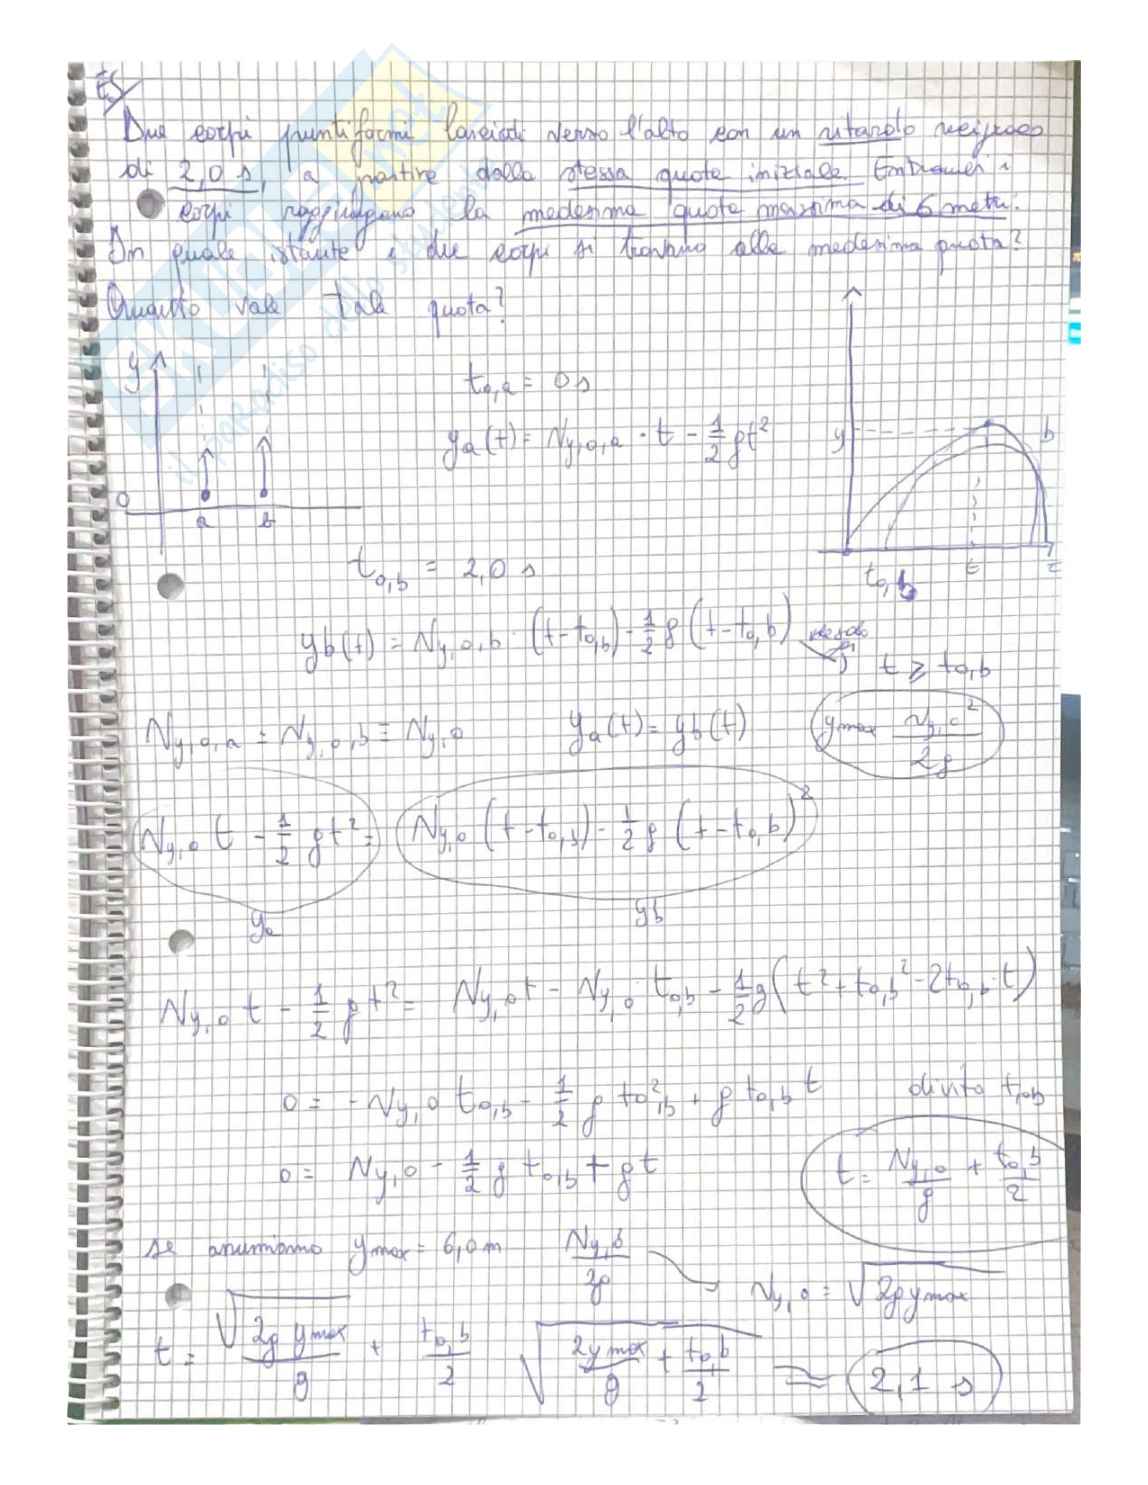 ES
Due corpi puntiformi lanciati verso l'alto con un ritardo reciproco
di 2,0 s, a partire dalla stessa quota iniziale. Entrambi i
corpi raggiungono la medesima quota massima di 6 metri.
In quale istante i due corpi si trovano alla medesima quota?
Quanto vale tale quota?
y
0
a b
t0,a = 0 s
ya(t) = Ny,0,a · t - 1/2 gt²
y b
t0,b t
t0,b = 2,0 s
yb(t) = Ny,0,b · (t-t0,b) - 1/2 g (t-t0,b)
t ⩾ t0,b
Ny,0,a = Ny,0,b = Ny,0 ya(t) = yb(t) ymax Ny,0²/2g
Ny,0 t - 1/2 gt² = Ny,0 (t-t0,b) - 1/2 g (t-t0,b)²
ya yb
Ny,0 t - 1/2 g t² = Ny,0t - Ny,0 · t0,b - 1/2 g (t² + t0,b² - 2t0,b · t)
0 = - Ny,0 t0,b - 1/2 g t0²,b + g t0,b t
0 = Ny,0 - 1/2 g t0,b + g t t = Ny,0/g + t0,b/2
se assumiamo ymax = 6,0 m Ny,b/2g Ny,0 = √2g ymax
t = √2g ymax/g + t0,b/2 √2ymax/g + t0,b/2 ≈ 2,1 s